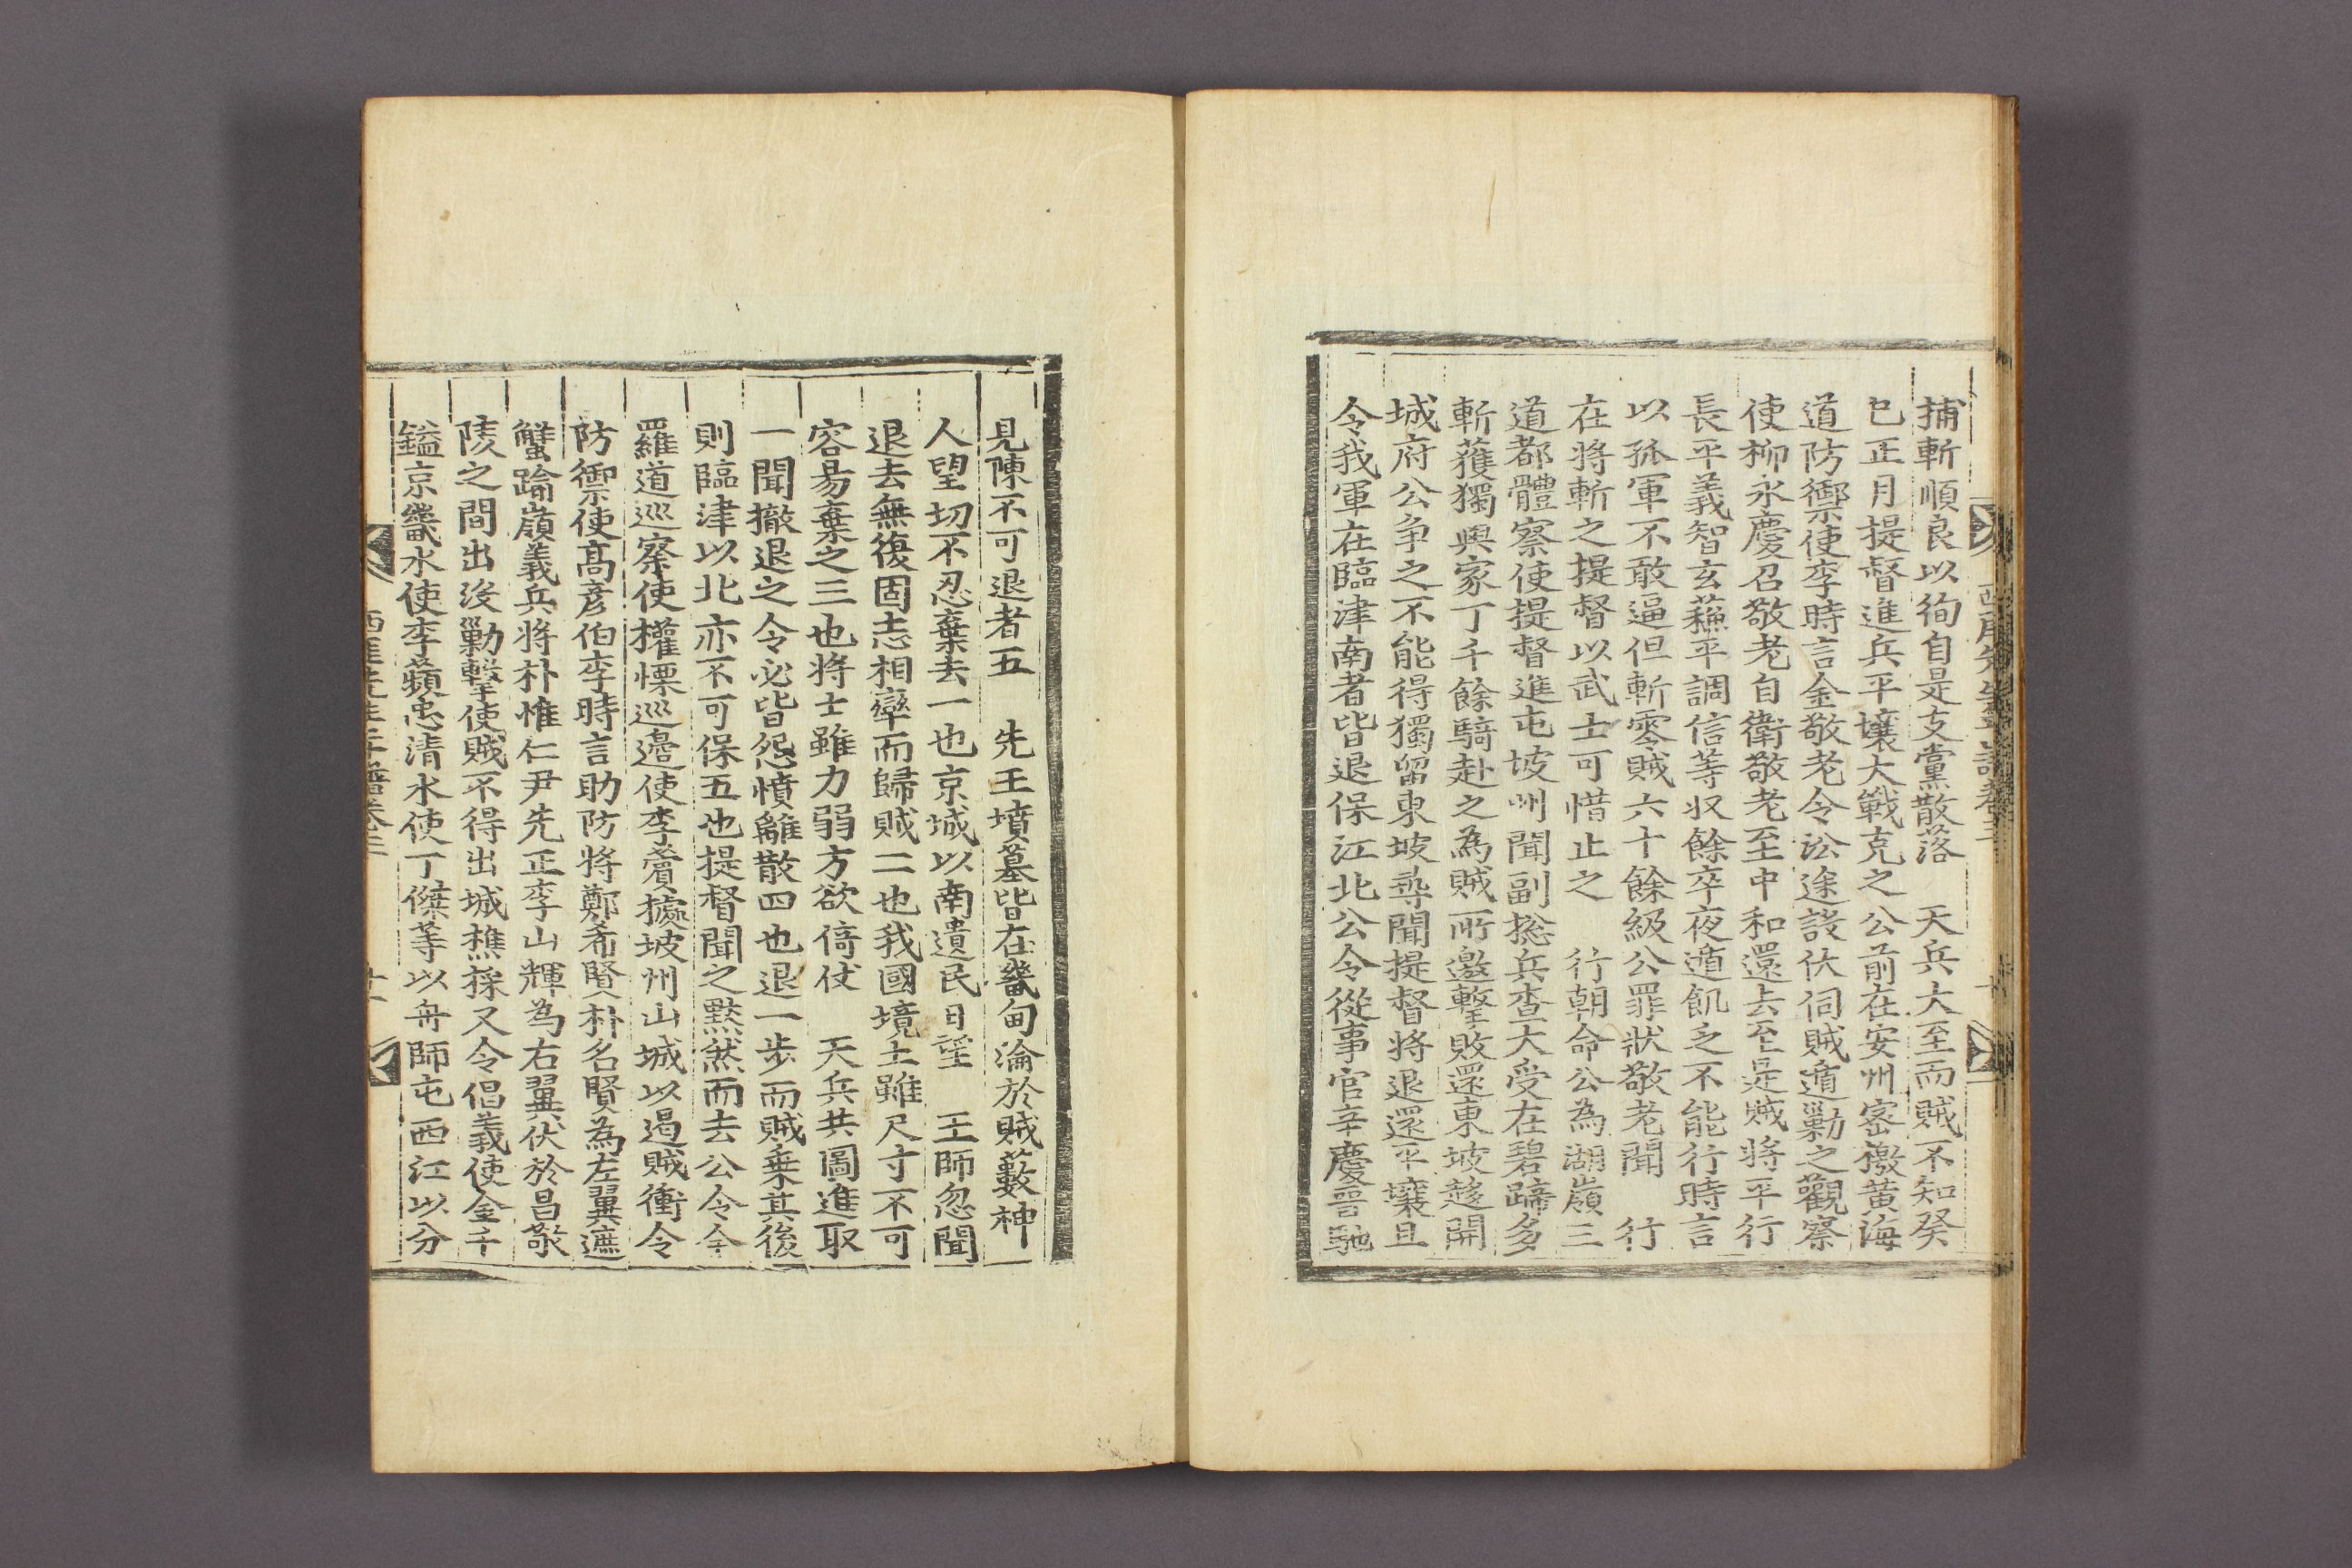 捕斬順良以徇自是支黨散落　天兵大至而賊不知癸
巳正月提督進兵平壤大戰克之公前在安州密檄黃海
道防禦使李時言金敬老令㳂途設伏伺賊遁勦之觀察
使柳永慶召敬老自衛敬老至中和還去至是賊將平行
長平義智玄蘓平調信等収餘卒夜遁飢乏不能行時言
以孤軍不敢逼但斬零賊六十餘級公罪狀敬老聞　行
在將斬之提督以武士可惜止之　行朝命公為湖嶺三
道都體察使提督進屯坡州聞副摠兵查大受在碧蹄多
斬獲獨與家丁千餘騎赴之為賊所邀擊敗還東坡趍開
城府公爭之不能得獨留東坡尋聞提督將退還平壤且
令我軍在臨津南者皆退保江北公令從事官辛慶晉馳
見陳不可退者五　先王墳墓皆在畿甸淪於賊藪神
人望切不忍棄去一也京城以南遺民日望　王師忽聞
退去無復固志相率而歸賊二也我國境土雖尺寸不可
容易棄之三也將士雖力弱方欲倚仗　天兵共圖進取
一聞撤退之令必皆怨憤離散四也退一步而賊乗其後
則臨津以北亦不可保五也提督聞之黙然而去公令全
羅道巡察使權慄巡邉使李薲據坡州山城以遏賊衝令
防禦使髙彦伯李時言助防將鄭希賢朴名賢為左翼遮
蟹踰嶺義兵將朴惟仁尹先正李山輝為右翼伏於昌敬
陵之間出没勦擊使賊不得出城樵採又令倡義使金千
鎰京畿水使李蘋忠清水使丁傑等以舟師屯西江以分